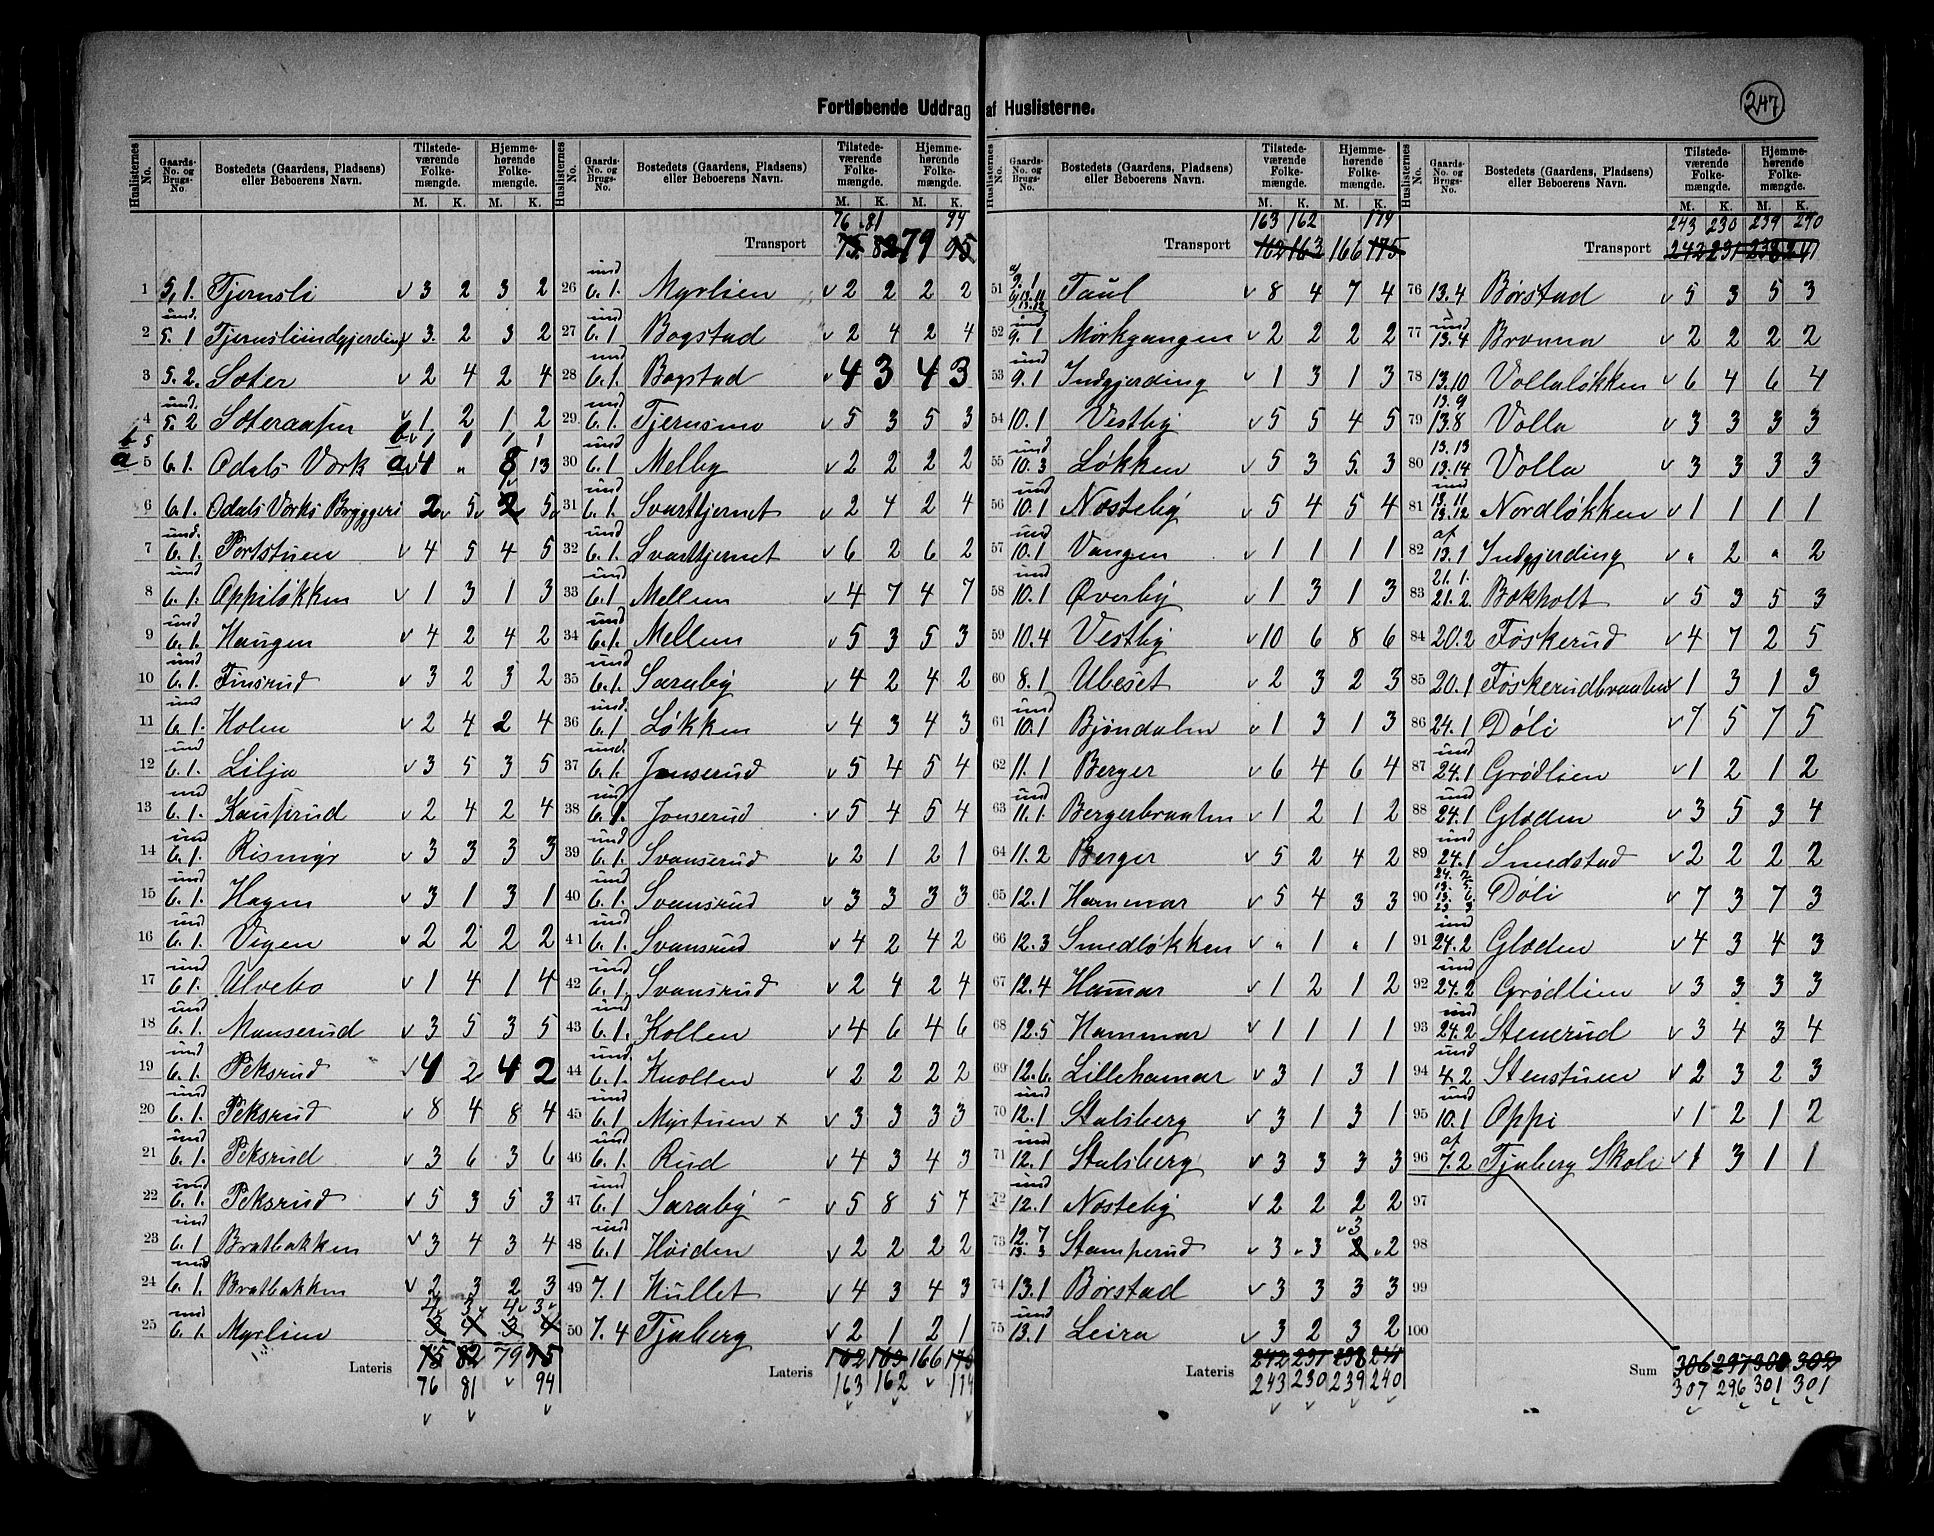 247
Fortløbende Uddrag af Huslisterne.
Huslisternes No. Gaards-No. og Brugs-No. Bostedets (Gaardens, Pladsens) eller Beboerens Navn. Tilstede-værende Folke-mængde. M. K. Hjemme-hørende Folke-mængde. M. K.
1 5,1. Tjernsli v 3 2 3 2
2 und. 5.1 Tjernsliindgjerding v 3. 2 3 2
3 5.2. Sæter v 2 4 2 4
4 und. 5.2 Sæteraasen v 1 2 1 2
b 5 b v 1 1 1 1
a 5 6.1. Odals Værk a v 4 " 8 13
6 6.1. Odals Værks Bryggeri 2 v 5 v 2 5 v
7 und. 6.1. Portstuen v 4 5 4 5
8 und 6.1. Oppiløkken v 1 3 1 3
9 und 6.1. Haugen v 4 2 4 2
10 und 6.1. Finsrud v 3 2 3 2
11 und 6.1. Holen v 2 4 2 4
12 und 6.1. Lilja v 3 5 3 5
13 und 6.1. Kausrud v 2 4 2 4
14 und 6.1. Rismyr v 3 3 3 3
15 und 6.1. Hagen v 3 1 3 1
16 und 6.1. Vigen v 2 2 2 2
17 und 6.1. Ulvebo v 1 4 1 4
18 und 6.1. Manserud v 3 5 3 5
19 und 6.1. Peksrud v 4 2 4 2
20 und 6.1. Peksrud v 8 4 8 4
21 und 6.1. Peksrud v 3 6 3 6
22 und 6.1. Peksrud v 5 3 5 3
23 und 6.1 Bratbakken v 3 4 3 4
24 und 6.1. Bratbakken v 2 3 2 3
4 v 3 v 4 v 3 v
25 und 6.1. Myrlien 3 4 3 4
Lateris 75 82 79 95
76 81 v 94
Huslisternes No. Gaards-No. og Brugs-No. Bostedets (Gaardens, Pladsens) eller Beboerens Navn. Tilstede-værende Folke-mængde. M. K. Hjemme-hørende Folke-mængde. M. K.
76 81 94
Transport 75 82 79 95
26 und 6.1. Myrlien v 2 2 2 2
27 und 6.1. Bogstad v 2 4 2 4
28 und 6.1. Bogstad v 4 3 4 3
29 und 6.1. Tjernsmo v 5 3 5 3
30 und 6.1 Melby v 2 2 2 2
31 und 6.1. Svarttjernet v 2 4 2 4
32 und 6.1. Svarttjernet v 6 2 6 2
33 und 6.1 Mellem v 4 7 4 7
34 und 6.1. Mellem v 5 3 5 3
35 und 6.1. Saraby v 4 2 4 2
36 und. 6.1 Løkken v 4 3 4 3
37 und. 6.1. Jonserud v 5 4 5 4
38 und 6.1. Jonserud v 5 4 5 4
39 und 6.1. Svanserud v 2 1 2 1
40 und 6.1. Svansrud v 3 3 3 3
41 und 6.1. Svansrud v 4 2 4 2
42 und 6.1. Svansrud v 2 4 2 4
43 und 6.1. Kollen v 4 6 4 6
44 und. 6.1. Knollen v 2 2 2 2
45 und 6.1 Myrstuen x v 3 3 3 3
46 und 6.1. Rud v 4 3 4 3
47 und 6.1 Saraby v 5 8 5 7
48 und 6.1 Høiden v 2 2 2 2
49 7.1 Kullet v 4 3 4 3
50 7.4 Tjuberg v 2 1 2 1
Lateris 162 163 166 175
163 162 v 174
Huslisternes No. Gaards-No. og Brugs-No. Bostedets (Gaardens, Pladsens) eller Beboerens Navn. Tilstede-værende Folke-mængde. M. K. Hjemme-hørende Folke-mængde. M. K.
163 162 174
Transport 162 163 166 175
51 a/ 9.1 b/ 13.11 13.12 Taul v 8 4 7 4
52 und 9.1 Mørkgangen v 2 2 2 2
53 und 9.1 Indgjerding v 1 3 1 3
54 10.1 Vestby v 5 5 4 5
55 und 10.3 Løkken v 5 3 5. 3
56 und 10.1 Næsteby v 5 4 5 4
57 und 10.1 Vangen v 1 1 1 1
58 und 10.1 Øverby v 1 3 1 3
59 10.4 Vestby v 10 6 8 6
60 8.1 Ubeset v 2 3 2 3
61 und 10.1 Bjöndalen v 1 3 1 3
62 11.1 Berger v 6 4 6 4
63 und 11.1. Bergerbraaten v 1 2 1 2
64 11.2 Berger v 5 2 4 2
65 12.1 Hammar v 5 4 3 3
66 12.3 Smedløkken v " 1 " 1
67 12.4 Hamar v 1 2 1 2
68 12.5 Hammar v 1 1 1 1
69 12.6. Lillehamar v 3 1 3 1
70 und 12.1 Stalsberg v 3 1 3 1
71 und 12.1 Stalsberg v 3 3 3 3
72 und 12.1 Næsteby v 2 2 2 2
v 3
73 12.7 13.3 Stamperud v 3 3 2 2
74 13.1 Børstad v 3 3 3 3
75 und 13.1 Leira v 3 2 3 2
Lateris 242 231 238 241
243 230 239 240
Huslisternes No. Gaards-No. og Brugs-No. Bostedets (Gaardens, Pladsens) eller Beboerens Navn. Tilstede-værende Folke-mængde. M. K. Hjemme-hørende Folke-mængde. M. K.
243 230 239 240
Transport 242 231 238 241
76 13.4 Børstad v 5 3 5 3
77 und 13.4 Brænna v 2 2 2 2
78 13.10 Volläløkken v 6 4 6 4
79 13.9 13.8 Volla v 3 3 3 3
80 13.13 13.14 Volla v 3 3 3 3
81 und 13.11 13.12 Nordløkken v 1 1 1 1
82 af 13.1 Indgjerding v " 2 " 2
83 21.1. 21.2. Bækholt v 5 3 5 3
84 20.2 Føskerud v 4 7 2 5
85 20.1 Føskerudbraaten v 1 3 1 3
86 24.1 Döli v 7 5 7 5
87 und 24.1 Grødlien v 1 2 1 2
88 und 24.1 Glæden v 3 5 3 4
89 und 24.1 Smedstad v 2 2 2 2
90 24.7 13.5 13.6 23.3 Döli v 7 3 7 3
91 und 24.2 Glæden v 4 3 4 3
92 und 24.2 Grødlien v 3 3 3 3
93 und 24.2 Stenerud v 3 4 3 4
94 und 4.2 Stenstuen v 2 3 2 3
95 und 10.1 Oppi v 1 2 1 2
96 af 7.2 Tjuberg Skole v 1 3 1 1
97
98
99
100
Sum 306 297 300 302
307 296 301 301